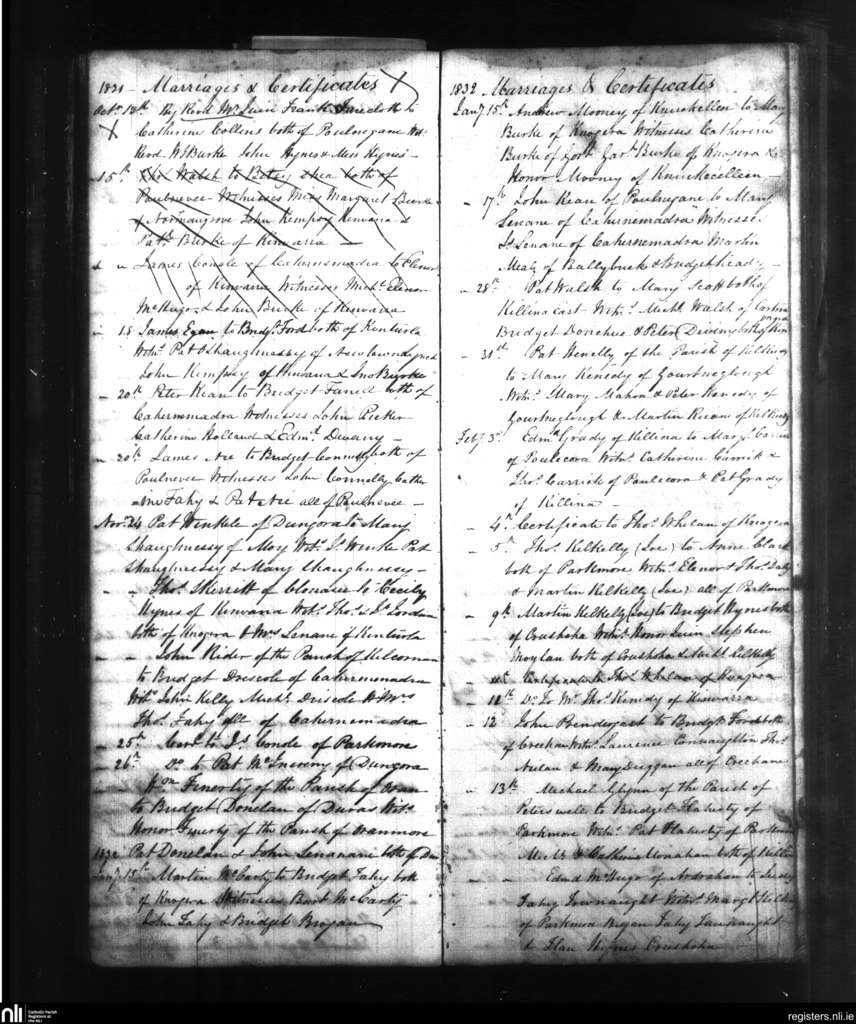 1831 - Marriages & Certificates X
Octr 12th By Revd Mr Quin Frank to
X Catherine Collins both of Poulnegane Wits
Revd W Burke John Hynes & Miss Hynes -
15th Walsh to Betsey Shea both of
Paulnevee Witnesses Miss Margaret Burke
of Normangrove John Kempsy Kinvaria &
Patk Burke of Kinvaria -
James Conole of Cahernemadra to Elenor
of Kinvaria Witnesses Michl Elenor
McHugo & John Burke of Kinvaria
- 18 James Egan to Bridgt Ford both of Kinturla
Wits Pat OShaughnessy of New
John Kempsy of Kinvara & Jno Burke
- 20th Peter Kean to Bridget Farrell both of
Cahernemadra Witnesses John Picker
Catherine Holland & Edmd Dewany -
- 20th James Nee to Bridget Connolly both of
Poulnevee Witnesses John Connolly Cathe
rine Fahy & Pat Nee all of Paulnevee -
Novr 24 Pat Winkle of Dungora to Mary
Shaughnessy of Moy Wits Js Winkle Pat
Shaughnessy & Mary Shaughnessy -
- Thos Skerritt of Clonasee to Cecily
Hynes of Kinvaria Wits Thos & Js Jordan
both of Knogera & Mrs Lenane of Kinturla
- John Rider of the Parish of Kilcornan
to Bridget Driscole of Cahernemadra
Wits John Kelly Michl Driscole & Mrs
Thos Fahy all of Cahernemadra
- 25th Cert to Js Conole of Parkmore
- 26th Do to Pat McInerny of Dungora
- Wm Finerty of the Parish of Oran
to Bridget Donelan of Duras Wits
Honor Finerty of the Parish of Oranmore
1832 Pat Donelan & John Lenanane both of Du
Jany 15th Martin McCarty to Bridget Fahy both
of Knogera Witnesses Bart McCarty
John Fahy & Bridget Brogan
1832 Marriages & Certificates
Jany 15th Andrew Mooney of Knuckelleen to Mary
Burke of Knogera Witnesses Catherine
Burke of Gort Jas Burke of Knogera &
Honor Mooney of Knuckecelleen -
- 17th John Kean of Poulnegane to Mary
Lenane of Cahernemadra Witnesses
Js Lenane of Cahernemadra Martin
Mealy of Ballybuck & Bridget
- 28th Pat Walsh to Mary Scott both of
Killina east Wits Michl Walsh of
Bridget Donohue & Peter Diviny both of Kin
- 31st Pat Henelly of the Parish of Kilkeedy
to Mary Kenedy of Gourtneglough
Wits Mary Mahon & Peter Kenedy of
Gourtneglough & Martin of Kilkeedy
Feby 3d Edmd Grady of Killina to Margt Carrick
of Poulecora Wits Catherine Carrick &
Thos Carrick of Paulecora & Pat Grady
of Killina -
- 4th Certificate to Thos Whelan of Knogera
- 5th Thos Kilkelly (Joe) to Anne Clark
both of Parkmore Wits Elenor & Thos
& Martin Kilkelly (Joe) all of Parkmore
- 9th Martin Kilkelly (Joe) to Bridget Hynes both
of Crushoha Wits Honor Quin Stephen
Moylan both of Crushoha & Michl Kilkelly
- 11th Certificate to Thos Whelan of Knogera
- 12th Do to Mr Thos Kenedy of Kinvarra
- 12 John Prendergast to Bridgt Ford both
of Creehan Wits Laurence Connaughton Thos
Nulan & Mary Duggan all of Creehane
- 13th Michael Glynn of the Parish of
Peterswell to Bridget Flaherty of
Parkmore Wits Pat Flaherty of Parkmore
Michl & Catherine Monahan both of Killin
- Edmd McHugo of Ardrahan to
Fahy Wits Margt
of Parkmore Bryan Fahy
& Hynes Crushoha
nli Catholic Parish
Registers at
the NLI
registers.nli.ie